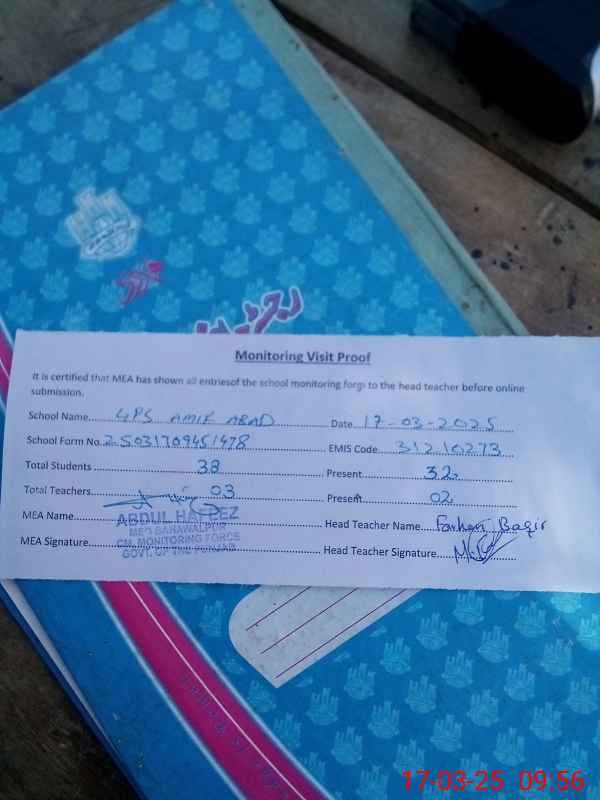 رجسٹر
Monitoring Visit Proof
It is certified that MEA has shown all entriesof the school monitoring form to the head teacher before online
submission.
School Name GPS AMIR ABAD Date 17-03-2025
School Form No. 25031709451478 EMIS Code 31210273
Total Students 38 Present 32
Total Teachers 03 Present 02
MEA Name ABDUL HAFEEZ Head Teacher Name Farhan Baqir
MEA BAHAWALPUR
CM. MONITORING FORCE
MEA Signature GOVT. OF THE PUNJAB Head Teacher Signature
17-03-25 09:56